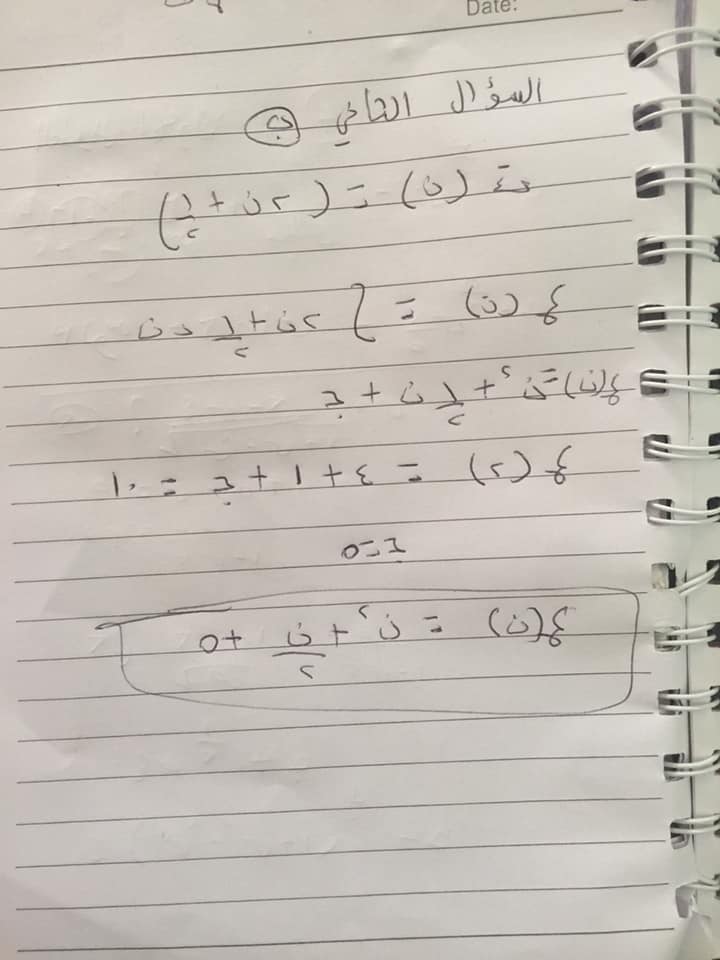 Date:
السؤال الثاني ب
ت (ن) = (٢ن + ١/٢)
ع (ن) = ∫ ٢ن + ١/٢ دن
ع(ن) = ن٢ + ١/٢ ن + ج
ع (٢) = ٤ + ١ + ج = ١٠
ج = ٥
ع(ن) = ن٢ + ن/٢ + ٥